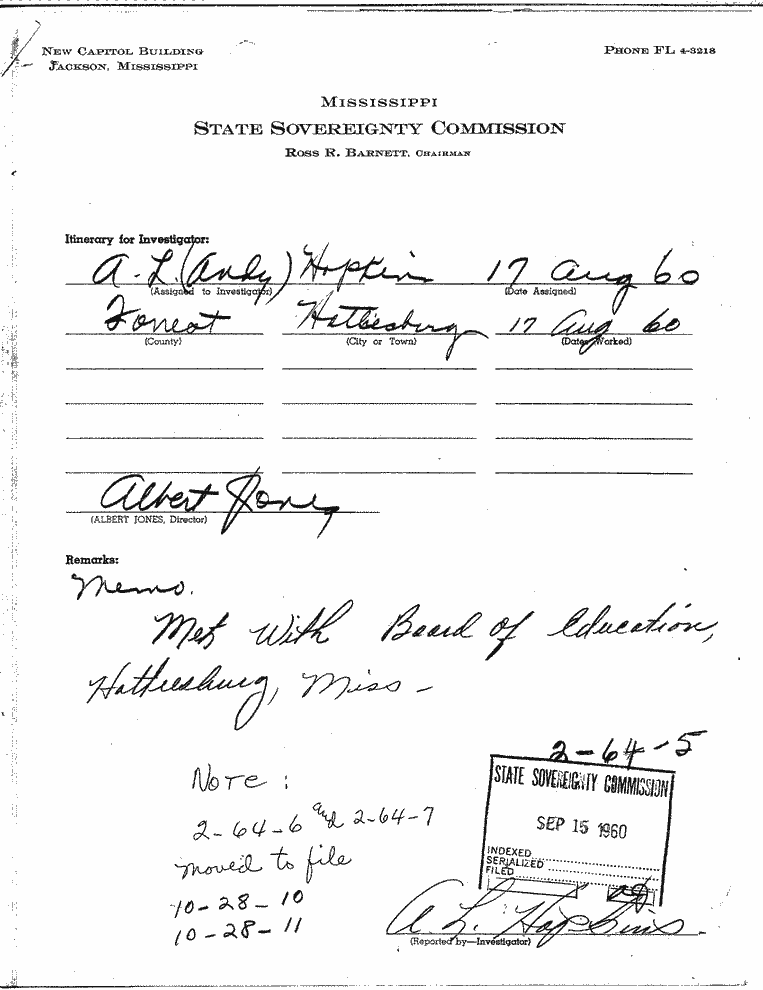 NEW CAPITOL BUILDING
JACKSON, MISSISSIPPI
PHONE FL 4-3218
MISSISSIPPI
STATE SOVEREIGNTY COMMISSION
ROSS R. BARNETT, CHAIRMAN
Itinerary for Investigator:
A. L. (Andy) Hopkins 17 Aug 60
(Assigned to Investigator) (Date Assigned)
Forrest Hattiesburg 17 Aug 60
(County) (City or Town) (Dates Worked)
Albert Jones
(ALBERT JONES, Director)
Remarks:
Memo.
Met With Board of Education,
Hattiesburg, Miss -
2-64-5
STATE SOVEREIGNTY COMMISSION
SEP 15 1960
INDEXED
SERIALIZED
FILED
Note:
2-64-6 and 2-64-7
moved to file
10-28-10
10-28-11
A L. Hopkins
(Reported by—Investigator)